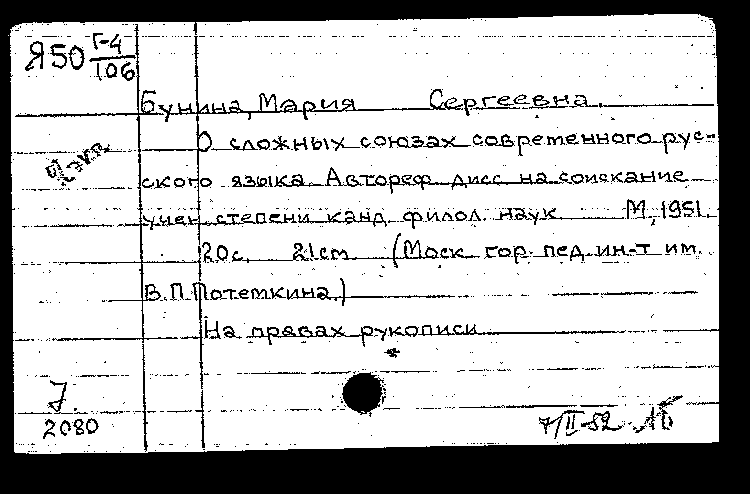 Я50 Г-4/106
Бунина, Мария Сергеевна.
О сложных союзах современного рус-
ского языка. Автореф. дисс. на соискание
учен. степени канд. филол. наук. М., 1951.
20с. 21cm. (Моск. гор. пед. ин-т им.
В.П.Потемкина.)
На правах рукописи
*
J.
2080
7/II-52